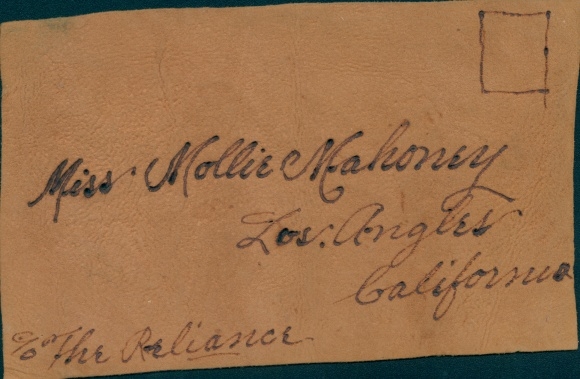 Miss Mollie Mahoney
Los. Angles
California
c/o The Reliance